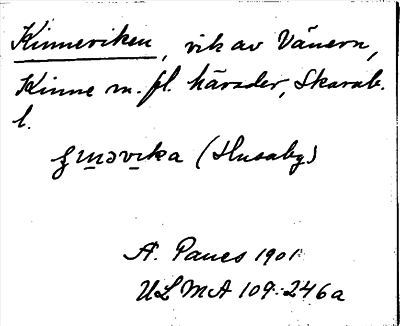 Kinneviken, vik av Vänern,
Kinne m. fl. härader, Skarab.
l.
(Husaby)
A. Paues 1901
ULMA 109:246a